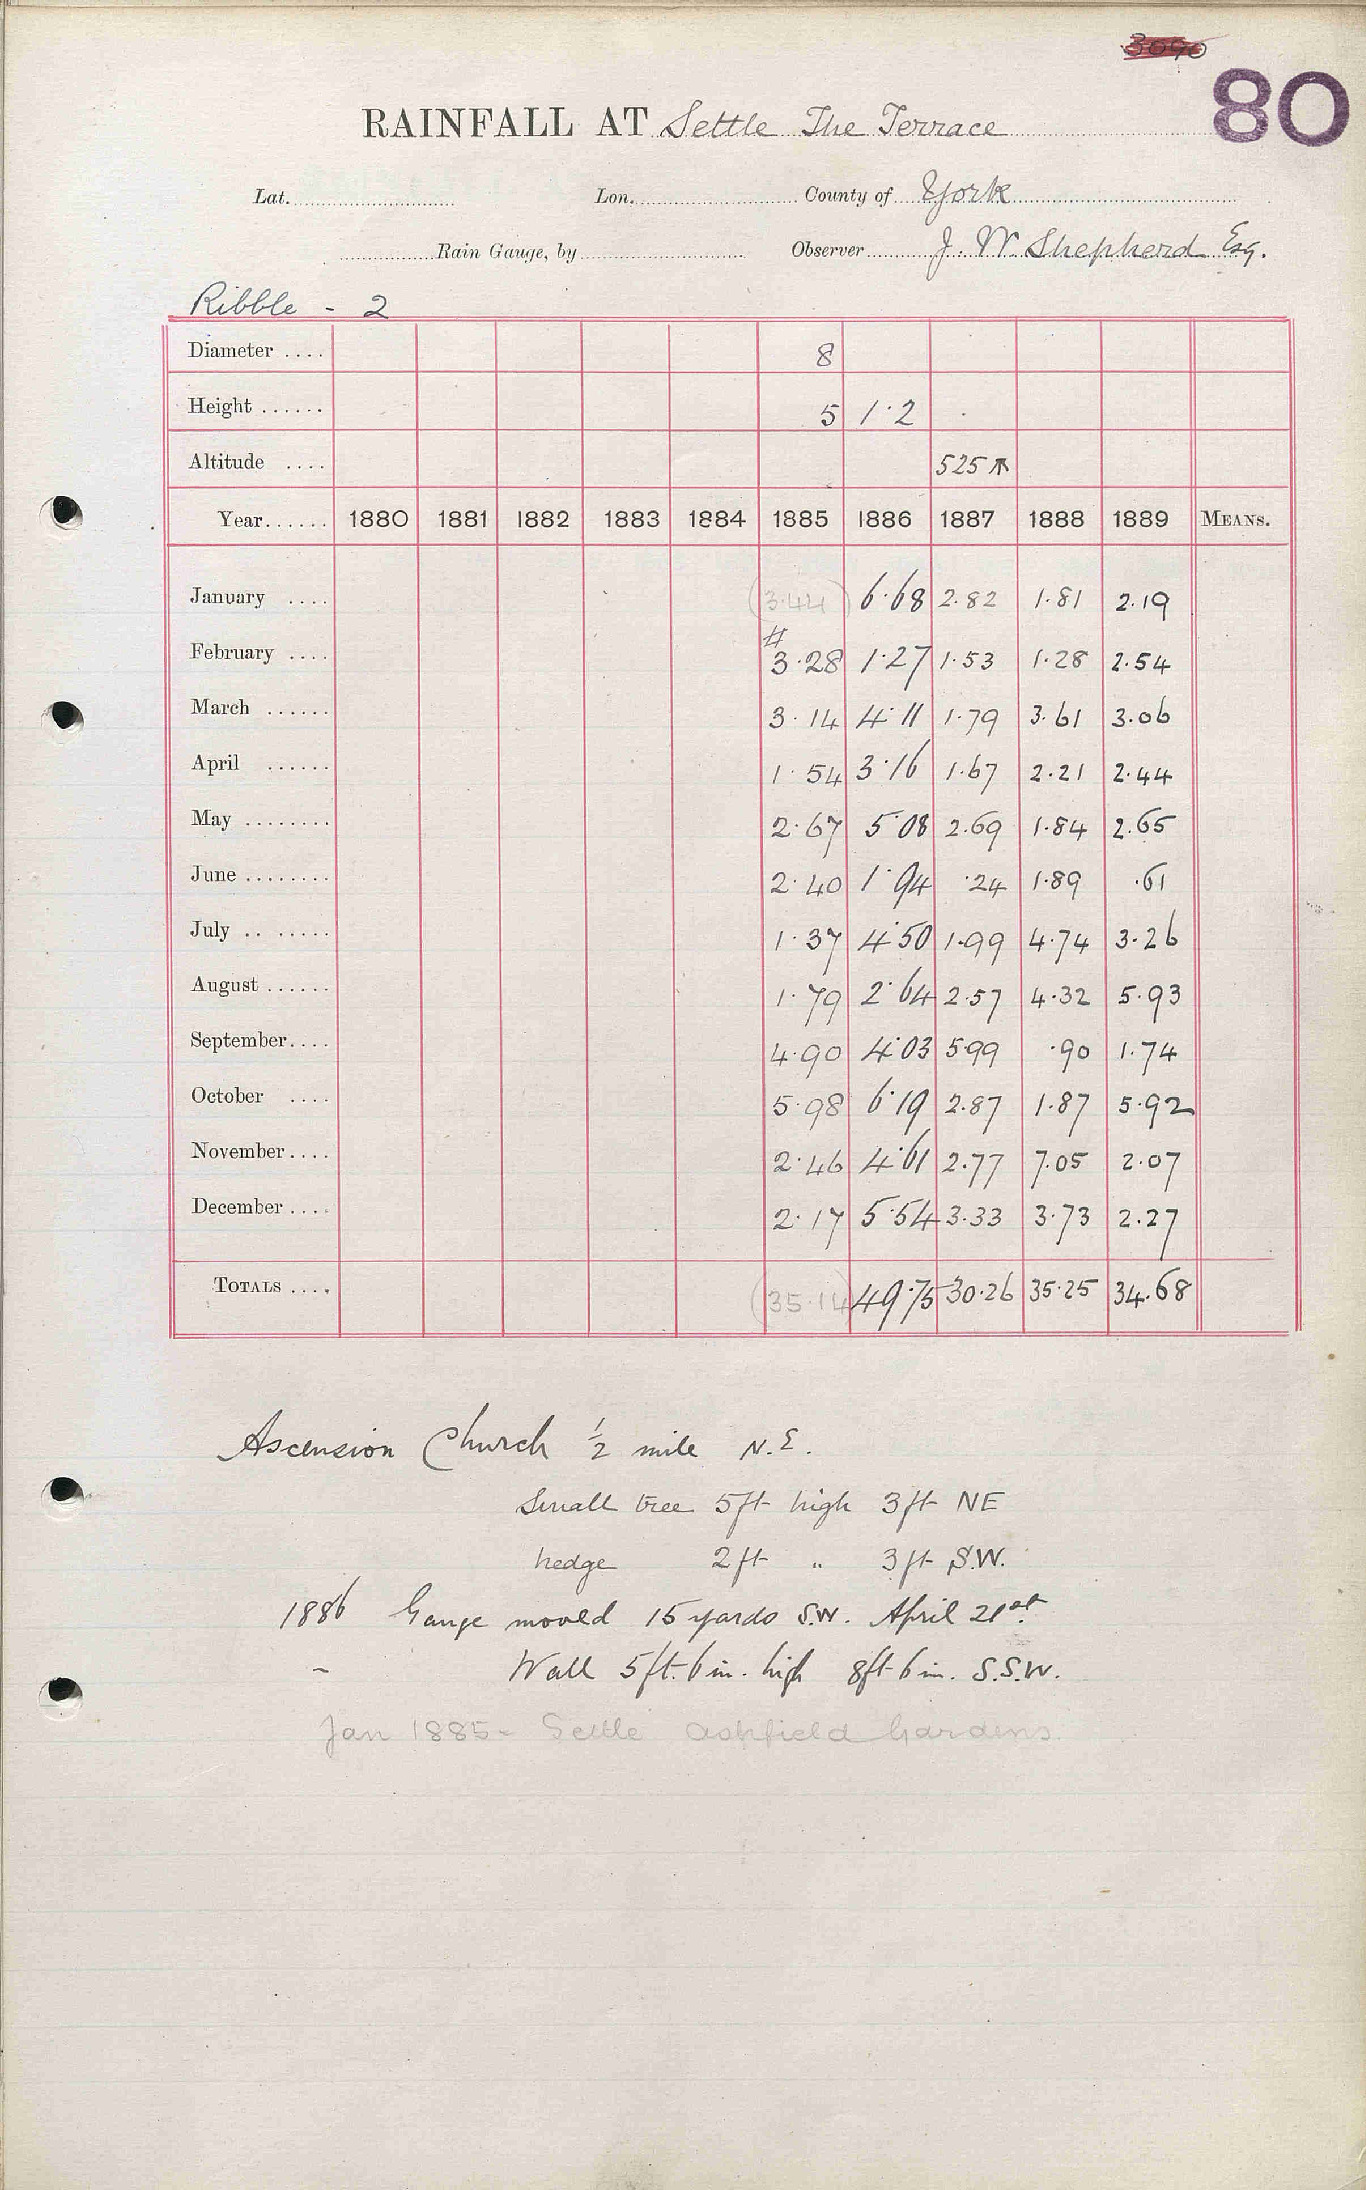 3090
80
RAINFALL AT Settle The Terrace
Lat. Lon. County of York
Rain Gauge, by Observer J. W. Shepherd Esq.
Ribble - 2
Diameter .... 8
Height ...... 5 1·2
Altitude .... 525
Year...... 1880 1881 1882 1883 1884 1885 1886 1887 1888 1889 MEANS.
January .... (3·44) 6·68 2.82 1.81 2.19
#
February .... 3·28 1·27 1·53 1·28 2.54
March ...... 3·14 4·11 1·79 3.61 3.06
April ...... 1·54 3·16 1·67 2·21 2·44
May ........ 2·67 5·08 2.69 1·84 2.65
June ........ 2·40 1·94 ·24 1·89 ·61
July .. ..... 1·37 4·50 1·99 4·74 3·26
August ...... 1·79 2·64 2·57 4·32 5·93
September.... 4·90 4·03 5·99 ·90 1·74
October .... 5·98 6·19 2·87 1·87 5·92
November.... 2·46 4·61 2·77 7.05 2·07
December.... 2·17 5·54 3·33 3·73 2.27
TOTALS .... (35·14) 49·75 30·26 35·25 34.68
Ascension Church ½ mile N.E.
Small tree 5ft high 3ft NE
hedge 2ft " 3ft S.W.
1886 Gauge moved 15 yards S.W. April 21st.
- Wall 5ft. 6in. high 8ft 6in. S.S.W.
Jan 1885- Settle Ashfield Gardens.